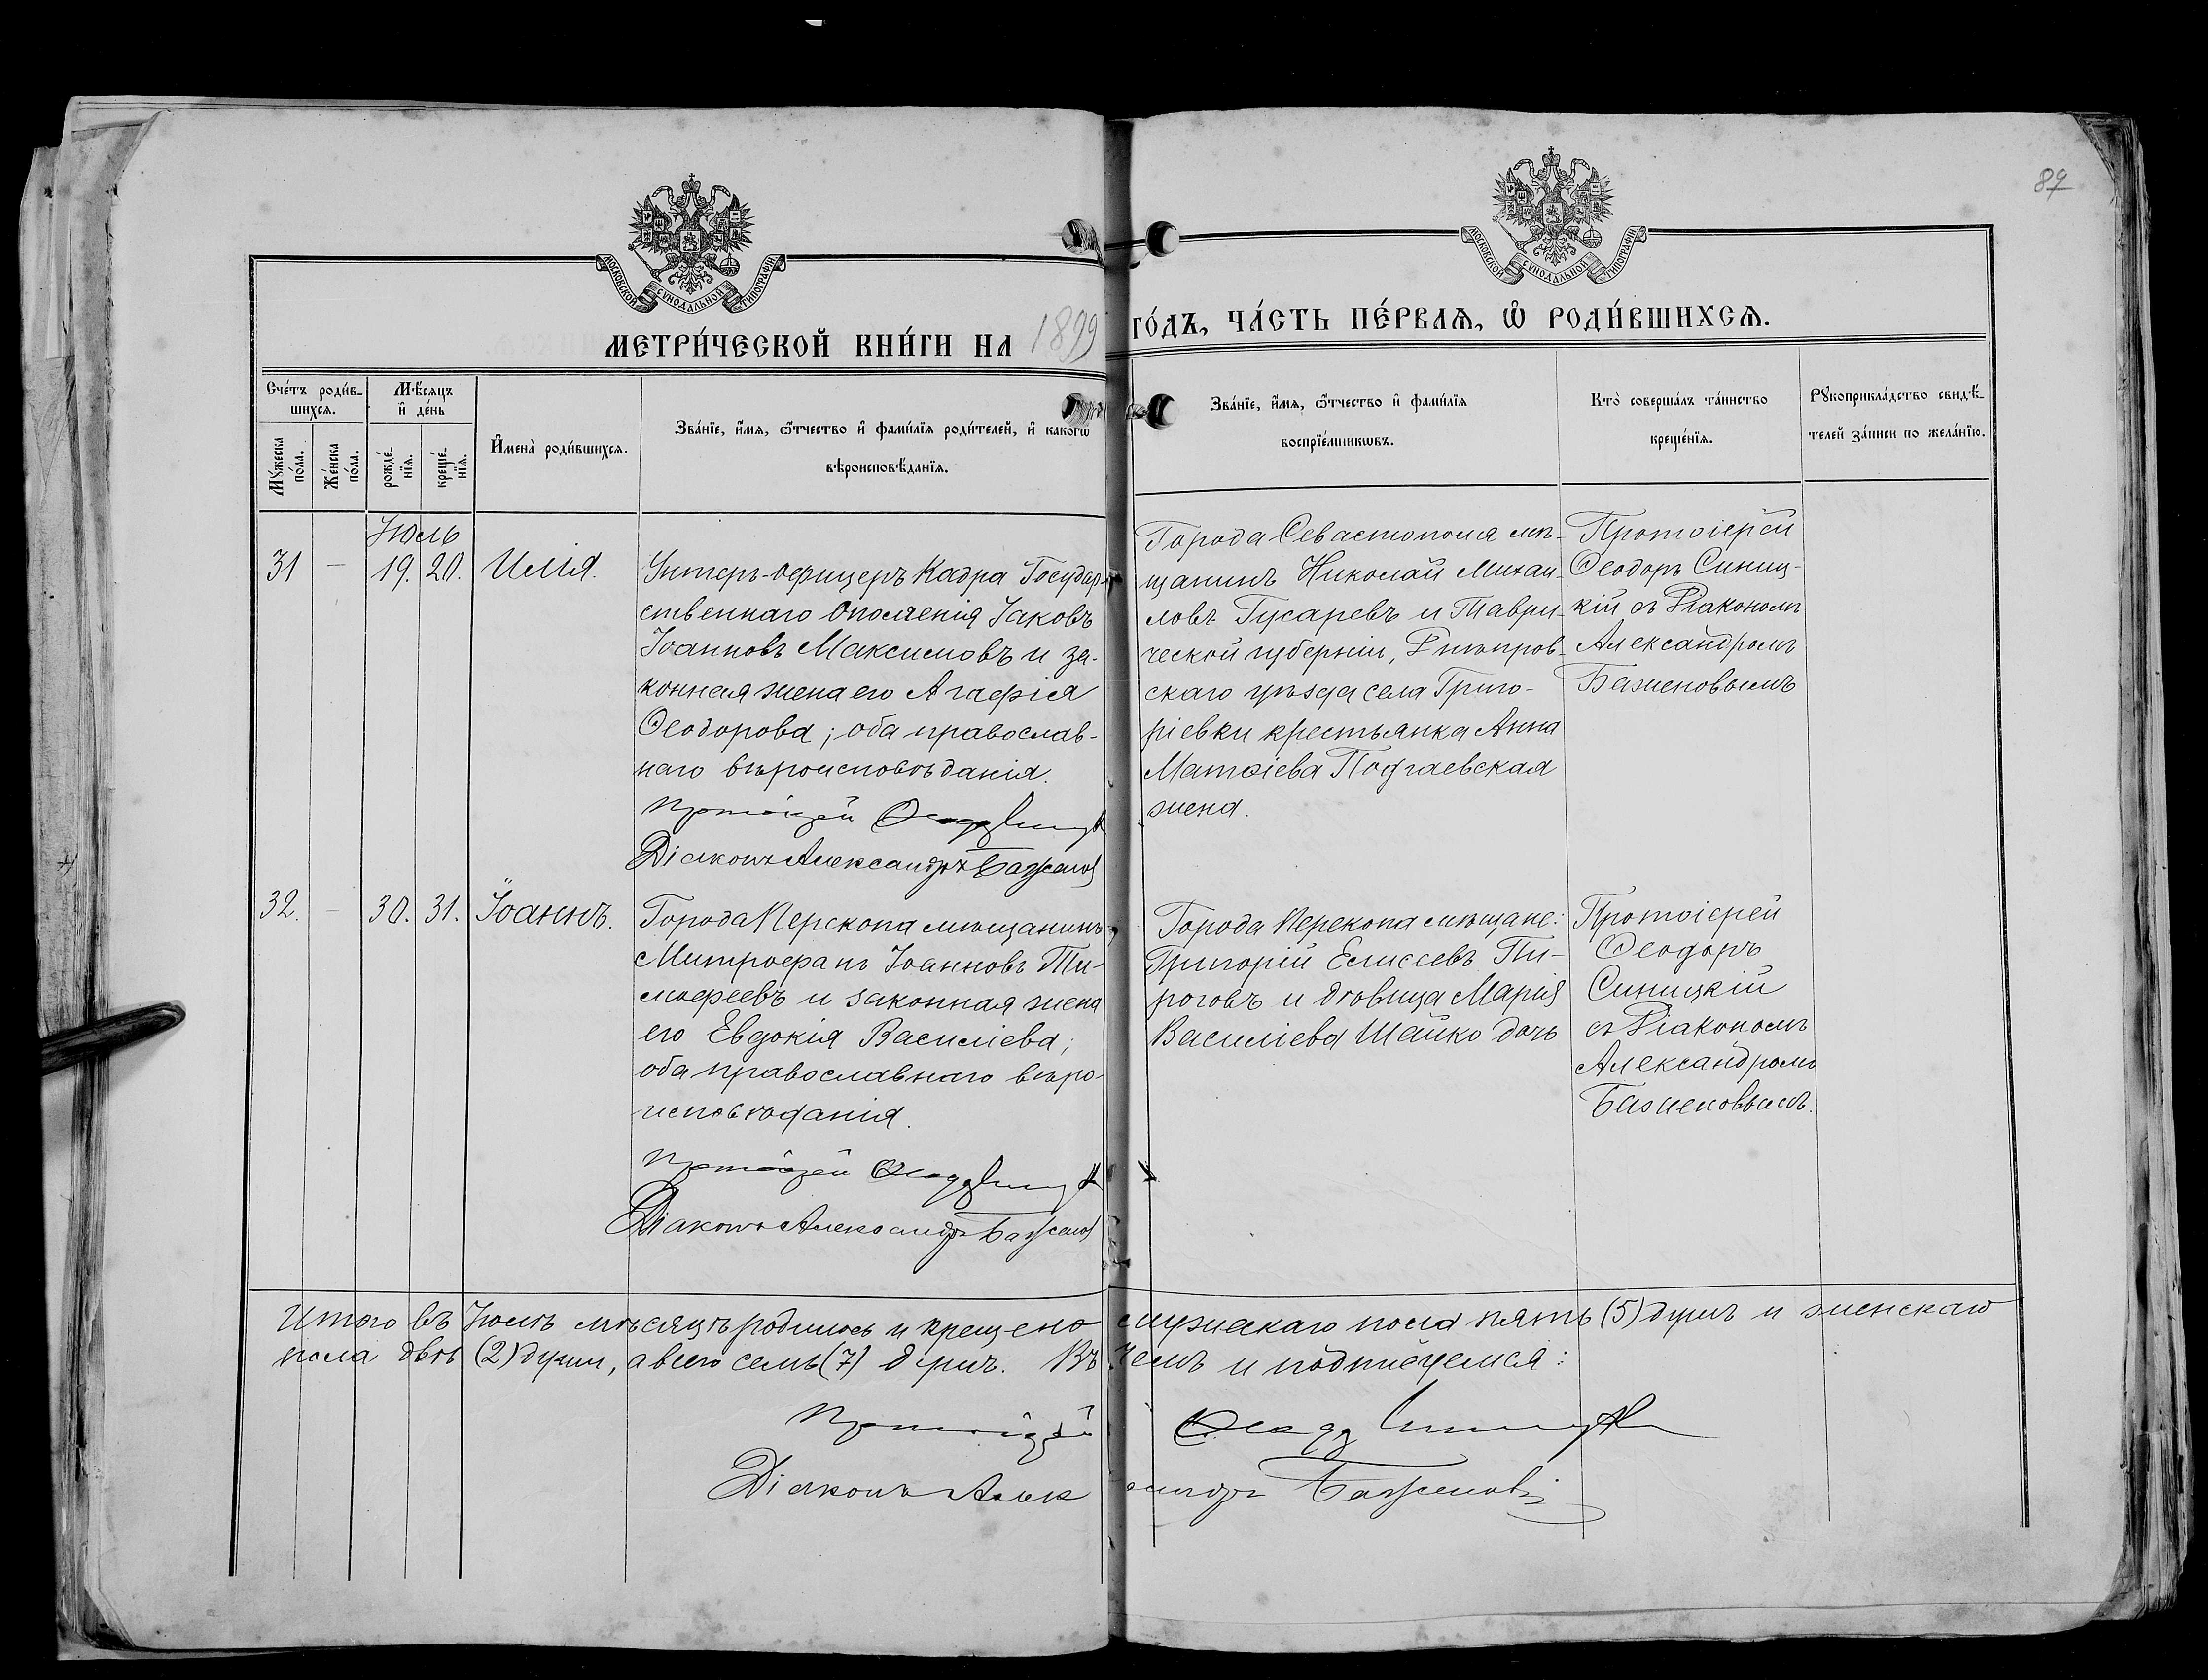 89
МОСКОВСКОЙ СѴНОДАЛЬНОЙ ТИПОГРАФІИ
МОСКОВСКОЙ СѴНОДАЛЬНОЙ ТИПОГРАФІИ
МЕТРИ́ЧЕСКОЙ КНИ́ГИ НА 1899 ГО́ДЪ, ЧА́СТЬ ПЕ́РВАѦ, Ѡ РОДИ́ВШИХСѦ.
Сче́тъ роди́в-
шихсѧ.
Мꙋ́жеска по́ла.
Же́нска по́ла.
Мѣ́сѧцъ
и҆ де́нь
рожде́нїѧ.
креще́нїѧ.
И҆мена̀ роди́вшихсѧ.
Зва́нїе, и҆́мѧ, ѻ҆́тчество и҆ фами́лїѧ роди́телей, и҆ како́гѡ
вѣроисповѣ́данїѧ.
Зва́нїе, и҆́мѧ, ѻ҆́тчество и҆ фами́лїѧ
воспрїе́мникѡвъ.
Кто̀ соверша́лъ та́инство
креще́нїѧ.
Рꙋкоприкла́дство свидѣ́-
телей за́писи по жела́нїю.
Іюль
31 – 19. 20. Илія.
Унтеръ-офицеръ Кадра Государ-
ственнаго Ополченія Іаковъ
Іоанновъ Максимовъ и за-
конная жена его Агафія
Ѳеодорова; оба православ-
наго вѣроисповѣданія.
Протоіерей Ѳеодоръ Синицкій
Діаконъ Александръ Баженовъ
Города Севастополя мѣ-
щанинъ Николай Михаи-
ловъ Гусаревъ и Таври-
ческой губерніи, Днѣпров-
скаго уѣзда села Григо-
ріевки крестьянка Анна
Матѳіева Подгаевская
жена.
Протоіерей
Ѳеодоръ Синиц-
кій съ Діакономъ
Александромъ
Баженовымъ
32. – 30. 31. Іоаннъ.
Города Перекопа мѣщанинъ
Митрофанъ Іоанновъ Ти-
мофеевъ и законная жена
его Евдокія Василіева;
оба православнаго вѣро-
исповѣданія.
Протоіерей Ѳеодоръ Синицкій
Діаконъ Александръ Баженовъ
Города Перекопа мѣщане:
Григорій Елисеевъ Пи-
роговъ и дѣвица Марія
Василіева Шайко дочь
Протоіерей
Ѳеодоръ
Синицкій
съ Діакономъ
Александромъ
Баженовымъ.
Итого въ Іюлѣ мѣсяцѣ родилось и крещено мужескаго пола пять (5) душъ и женскаго
пола двѣ (2) души, а всего семь (7) душъ. Въ чемъ и подписуемся:
Протоіерей Ѳеодоръ Синицкій
Діаконъ Александръ Баженовъ